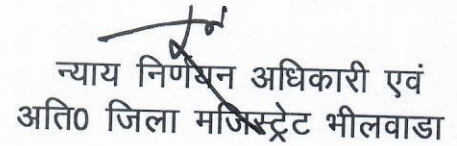 न्याय निर्णयन अधिकारी एवं
अति0 जिला मजिस्ट्रेट भीलवाडा